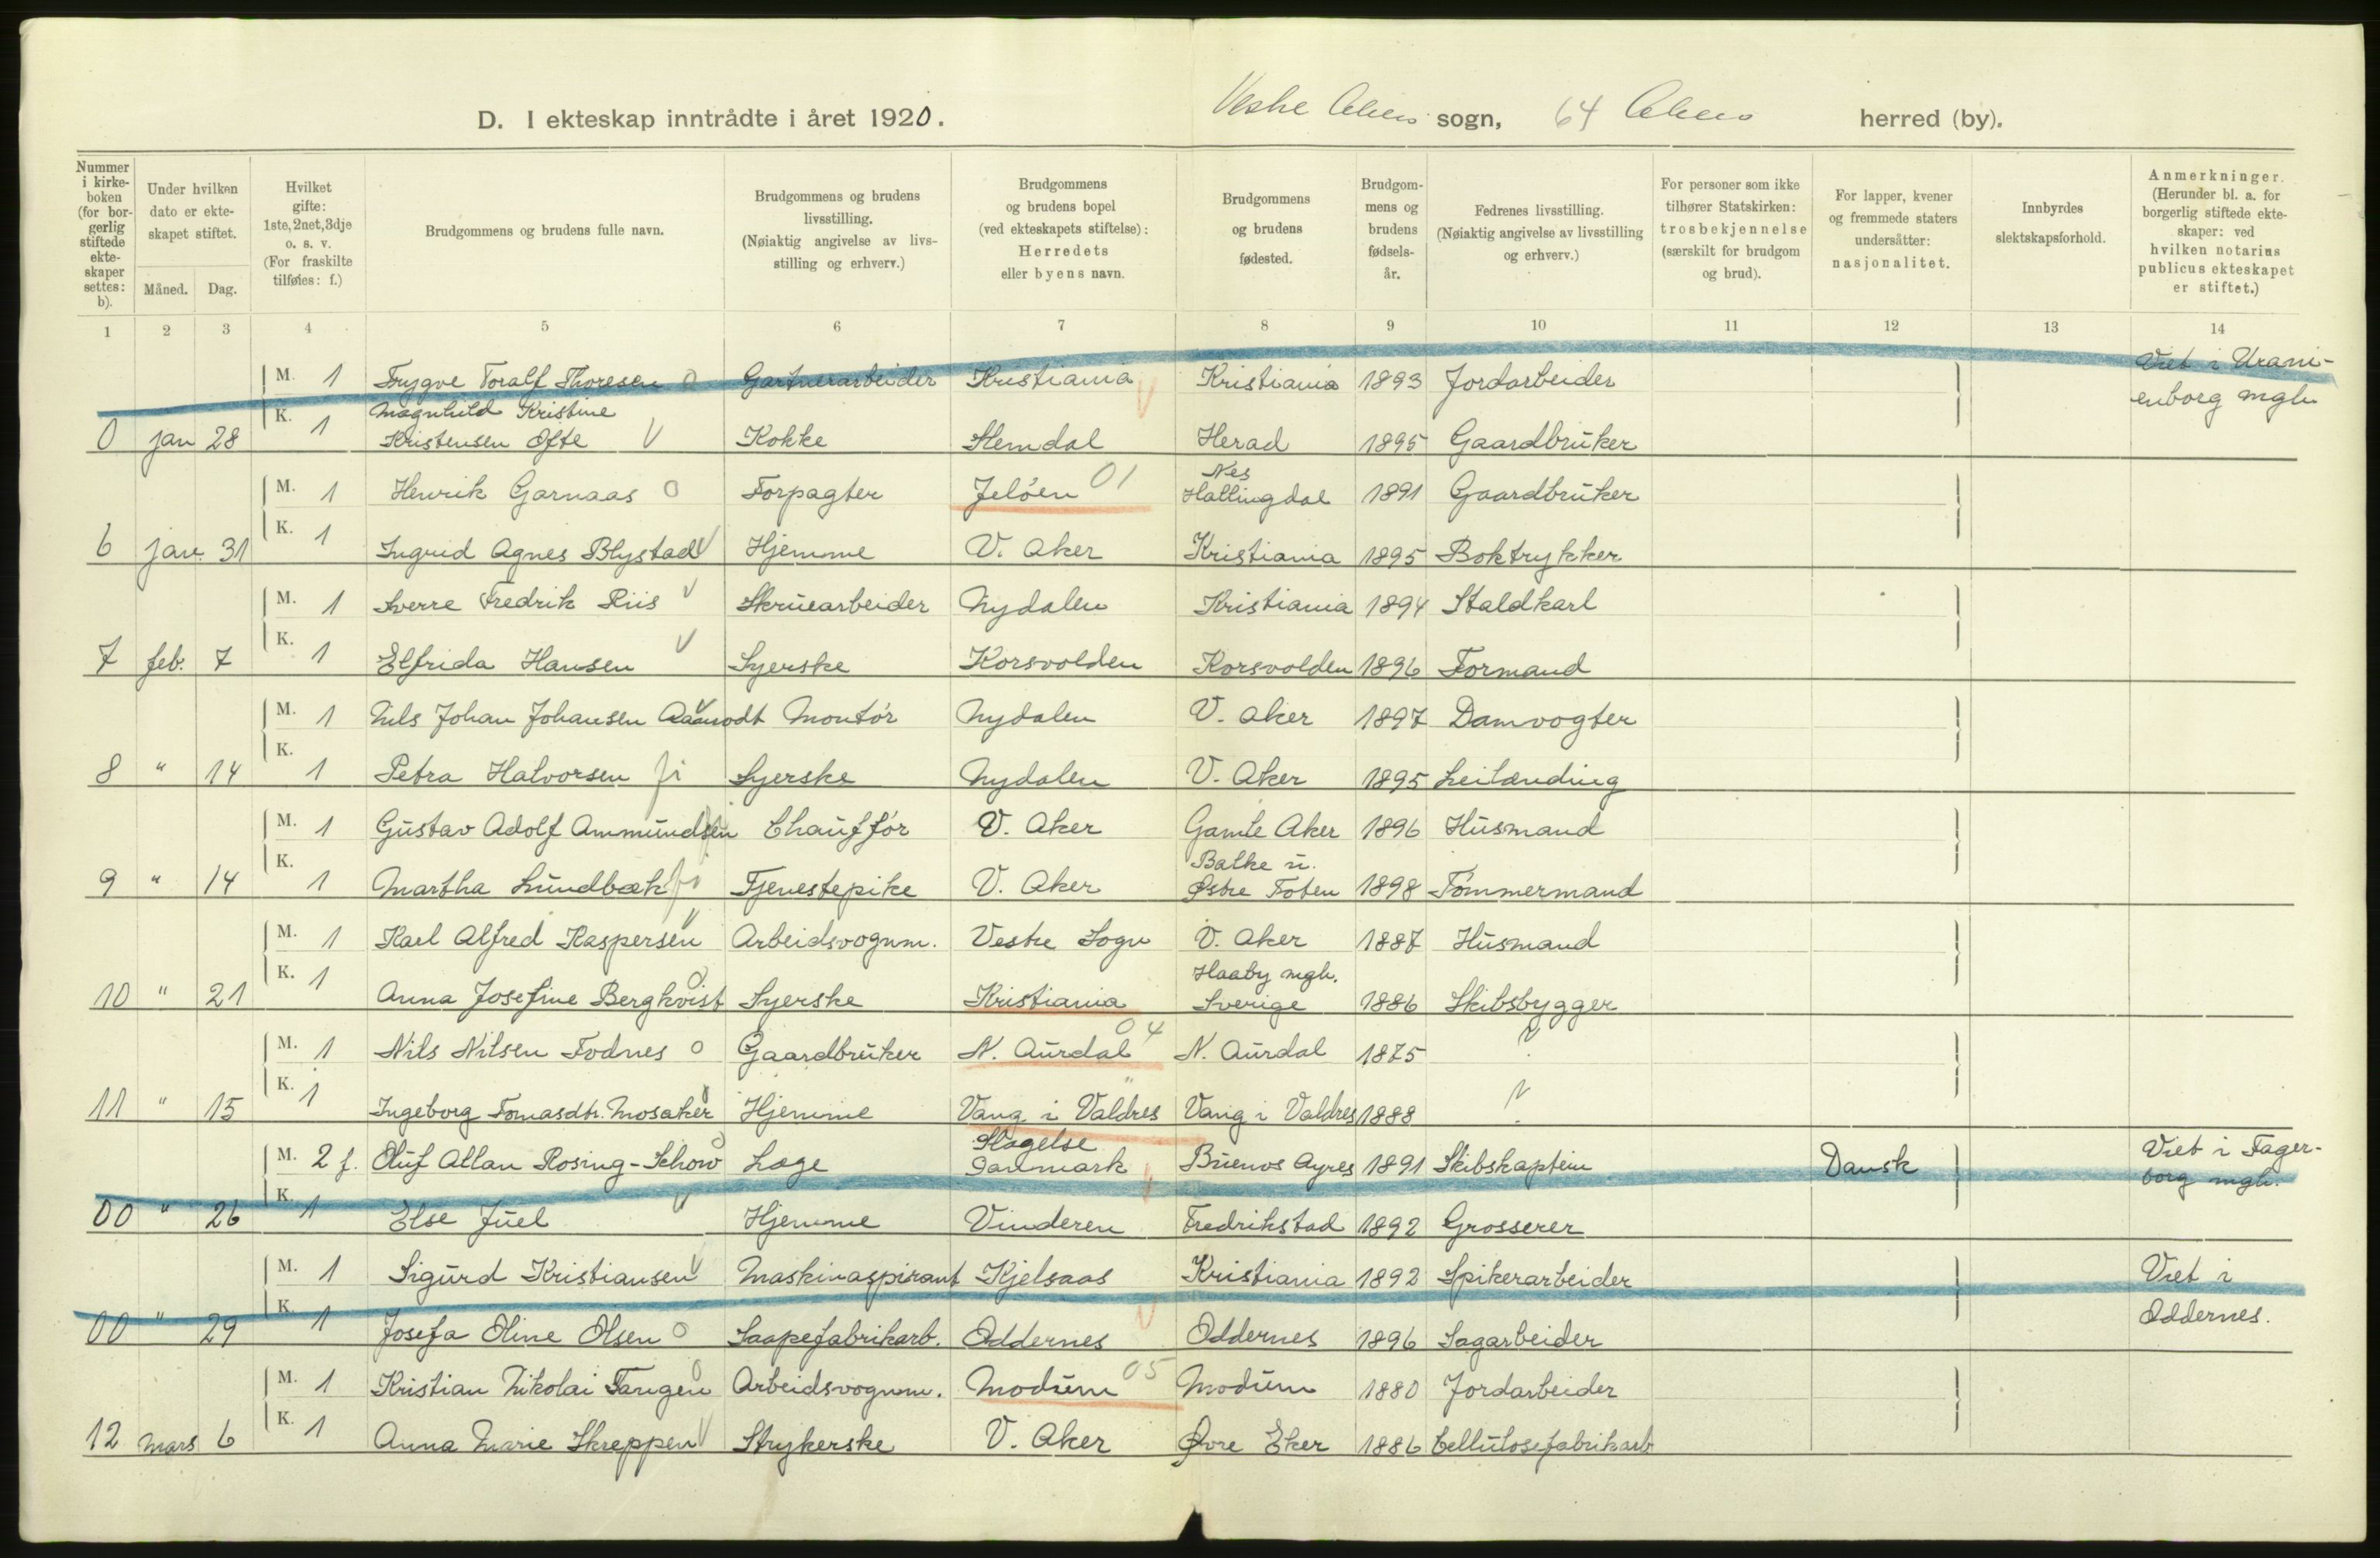 D. I ekteskap inntrådte i året 1920. Vestre Akers sogn, 64 Akers herred (by).
Nummer i kirkeboken (for borgerlig stiftede ekteskaper settes: b).
Under hvilken dato er ekteskapet stiftet.
Måned. Dag.
Hvilket gifte: 1ste, 2net, 3dje o. s. v. (For fraskilte tilføies: f.)
Brudgommens og brudens fulle navn.
Brudgommens og brudens livsstilling. (Nøiaktig angivelse av livsstilling og erhverv.)
Brudgommens og brudens bopel (ved ekteskapets stiftelse): Herredets eller byens navn.
Brudgommens og brudens fødested.
Brudgommens og brudens fødselsår.
Fedrenes livsstilling. (Nøiaktig angivelse av livsstilling og erhverv.)
For personer som ikke tilhører Statskirken: trosbekjennelse (særskilt for brudgom og brud).
For lapper, kvener og fremmede staters undersåtter: nasjonalitet.
Innbyrdes slektskapsforhold.
Anmerkninger. (Herunder bl. a. for borgerlig stiftede ekteskaper: ved hvilken notarius publicus ekteskapet er stiftet.)
1 2 3 4 5 6 7 8 9 10 11 12 13 14
M. 1 Trygve Toralf Thoresen o Gartnerarbeider Kristiania Kristiania 1893 Jordarbeider Viet i Urani-
enborg mgh.
K. 1 Magnhild Kristine
0 jan 28 Kristensen Ofte V Kokke Hemdal Herad 1895 Gaardbruker
M. 1 Henrik Garnaas o Forpagter Jeløen 01 Nes Hallingdal 1891 Gaardbruker
6 jan. 31 K. 1 Ingrid Agnes Blystad V Hjemme V. Aker Kristiania 1895 Boktrykker
M. 1 Sverre Fredrik Riis V Skruearbeider Nydalen Kristiania 1894 Staldkarl
7 feb. 7 K. 1 Elfrida Hansen V Syerske Korsvolden Korsvolden 1896 Formand
M. 1 Nils Johan Johansen Aamodt Montør Nydalen V. Aker 1897 Damvogter
8 " 14 K. 1 Petra Halvorsen fi Syerske Nydalen V. Aker 1895 Leilænding
M. 1 Gustav Adolf Ammundsen Chauffør V. Aker Gamle Aker 1896 Husmand
9 " 14 K. 1 Martha Lundbæk fi Tjenestepike V. Aker Balke i Østre Toten 1898 Tømmermand
M. 1 Karl Alfred Kaspersen V Arbeidsvognm. Vestre Sogn V. Aker 1887 Husmand
10 " 21 K. 1 Anna Josefine Bergkvist o Syerske Kristiania Haaby mgh. Sverige 1886 Skibsbygger
M. 1 Nils Nilsen Fodnes o Gaardbruker N. Aurdal 04 N. Aurdal 1875 ?
11 " 15 K. 1 Ingeborg Tomasdtr. Mosaker o Hjemme Vang i Valdres " Vang i Valdres 1888 ?
M. 2 f. Oluf Allan Rosing-Schow o Læge Slagelse Danmark Buenos Ayres 1891 Skibskaptein Dansk Viet i Fager-
borg mgh.
00 " 26 K. 1 Else Juel V Hjemme Vinderen Fredrikstad 1892 Grosserer
M. 1 Sigurd Kristiansen V Maskinaspirant Kjelsaas Kristiania 1892 Spikerarbeider Viet i
Oddernes.
00 " 29 K. 1 Josefa Oline Olsen o Saapefabrikarb. Oddernes Oddernes 1896 Sagarbeider
M. 1 Kristian Nikolai Tangen o Arbeidsvognm. Modum 05 Modum 1880 Jordarbeider
12 mars 6 K. 1 Anna Marie Skreppen V Strykerske V. Aker Øvre Eker 1886 Cellulosefabrikarb